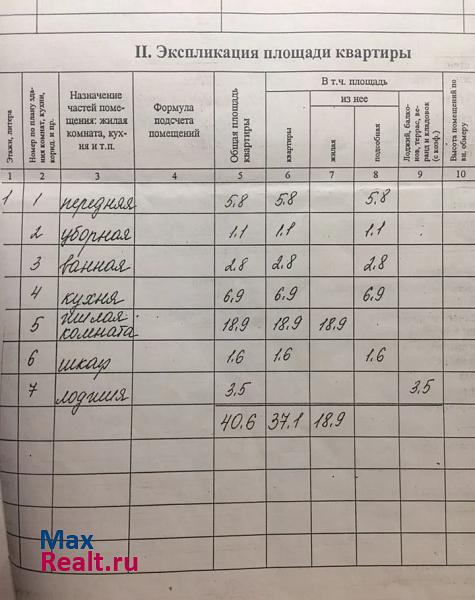 II. Экспликация площади квартиры
Этажи, литера
Номер по плану зда-
ния комнат, кухни,
корид. и пр.
Назначение
частей поме-
щения: жилая
комната, кух-
ня и т.п.
Формула
подсчета
помещений
Общая площадь
квартиры
В т.ч. площадь
квартиры
из нее
жилая
подсобная
Лоджий, балко-
нов, террас, ве-
ранд и кладовок
(с коэф.)
Высота помещений по
вн. обмеру
1 2 3 4 5 6 7 8 9 10
1 1 передняя 5.8 5.8 5.8
2 уборная 1.1 1.1 1.1
3 ванная 2.8 2.8 2.8
4 кухня 6.9 6.9 6.9
5 жилая
комната 18.9 18.9 18.9
6 шкаф 1.6 1.6 1.6
7 лоджия 3.5 3.5
40.6 37.1 18.9
Max
Realt.ru